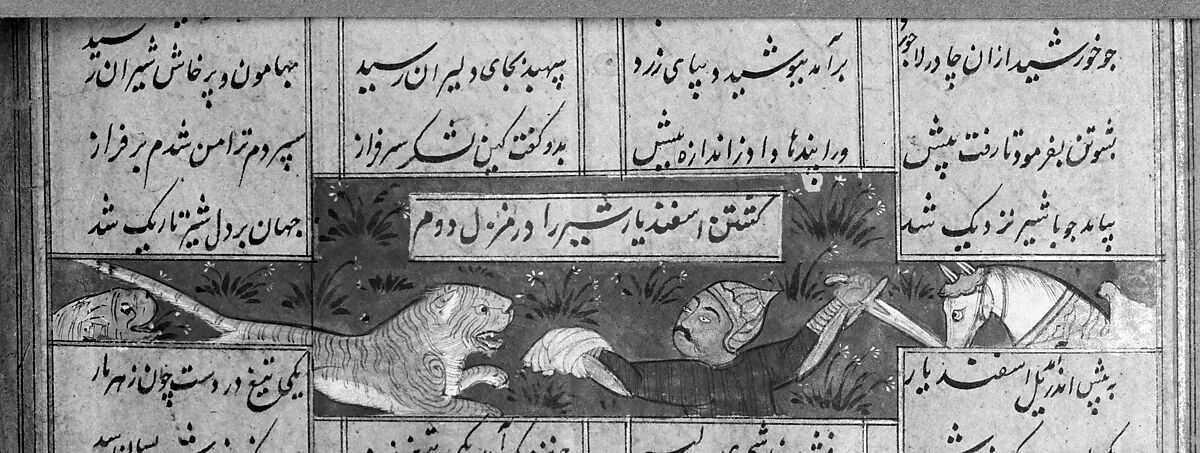 جو خورشید ازان چادر لاجورد
برآمد بپوشید دیبای زرد
سپهبد بجای دلیران رسید
بهامون و پرخاش شیران رسید
پشوتن بفرمود تا رفت پیش
ورا پندها داد ز اندازه بیش
بدو گفت کین لشکر سرفراز
سپردم ترا من شدم بر فراز
بیامد جو با شیر نزدیک شد
جهان بر دل شیر تاریک شد
کشتن اسفندیار شیر را در منزل دوم
به پیش اندر اسفندیار
یکی تیغ در دست چون زهر مار